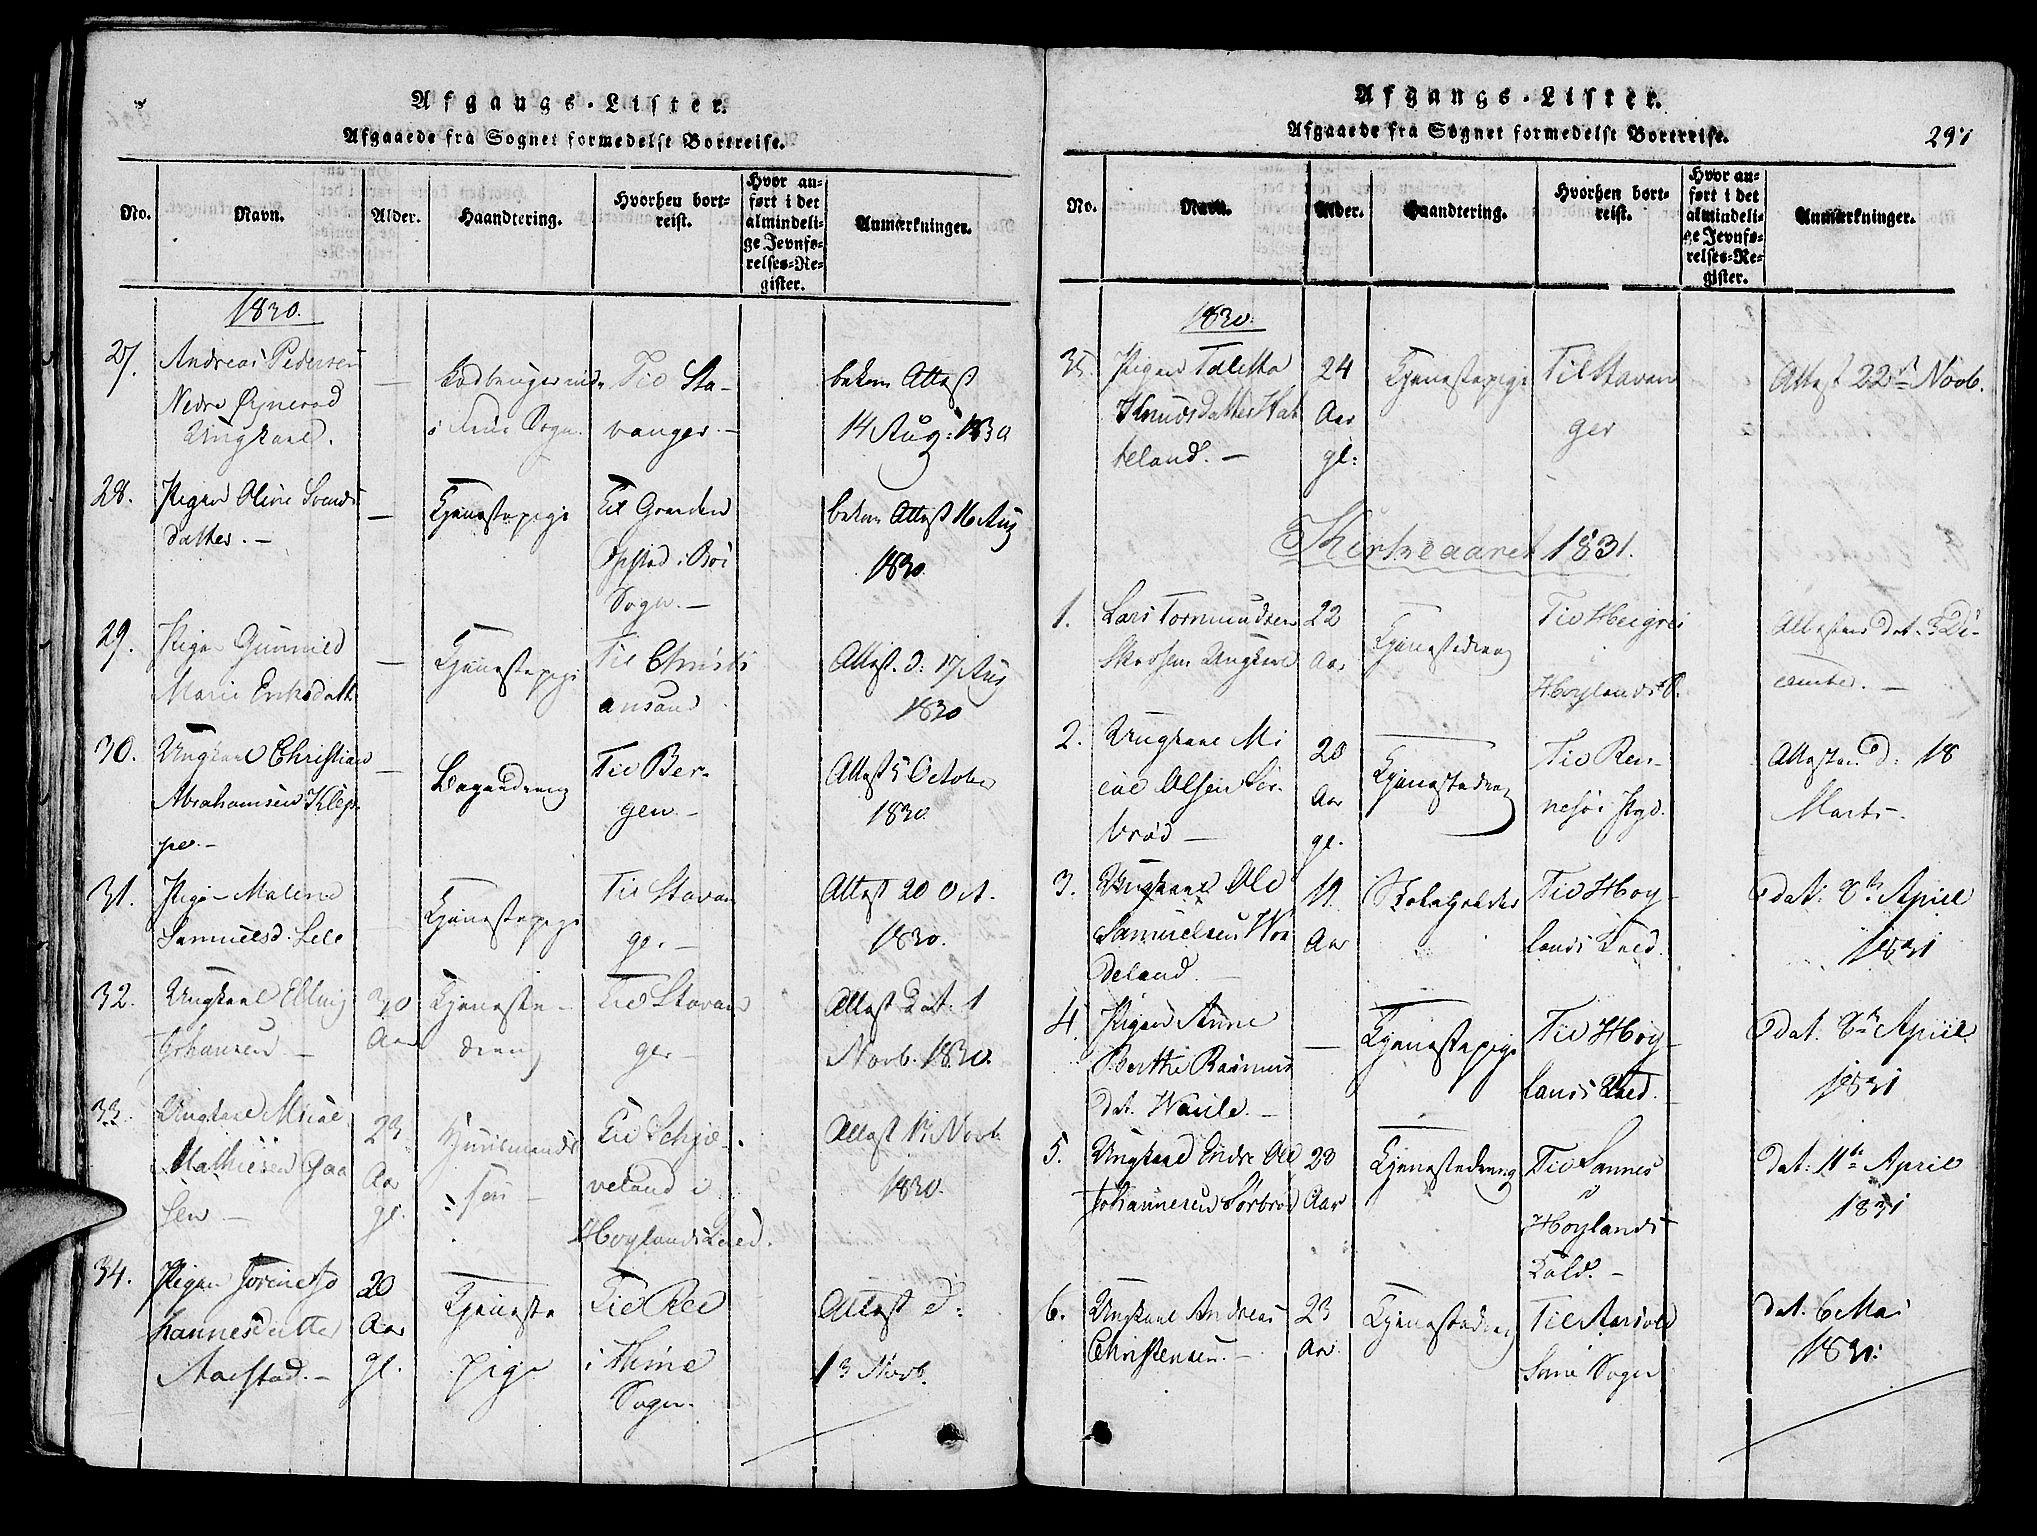 Afgangs-Lister.
Afgaaede fra Sognet formedelst Bortreise.
No.
Navn.
Alder.
Haandtering.
Hvorhen bort-
reist.
Hvor an-
ført i det
almindeli-
ge Jevnfø-
relses-Re-
gister.
Anmærkninger.
1830.
27.
Andreas Pedersen
Nedre
Ungkarl.
—
i Sogn.
Til Sta-
vanger. —
bekom Attest
14 Aug: 1830
28.
Pigen Oline Svends
datter. —
—
Tjenestepige
Til Gaarden
Opstad i
Sogn. —
bekom Attest 16 Aug
1830.
29.
Pigen Gunnild
Marie Eriksdatt
—
Tjenestepige
Til Christi
ansand
Attest. d: 17 Aug
1830
30.
Ungkarl Christian
Abrahamsen Klep
pe. —
—
Til Ber-
gen. —
Attest 5 October
1830.
31.
Pige Malene
Samuelsd.
Tjenestepige
Til Stavan
ger. —
Attest 20 Oct.
1830.
32.
Ungkarl Elling
Johansen —
30
Aar
Tjeneste-
dreng
Til Stavan
ger
Attest Dat. 1
Novb. 1830.
33.
Ungkarl
Mathiesen Gaa
sen —
23
Aar
gl.
Huusmands
søn —
Til Schjæ-
veland i
Høylands Gield.
Attest 13 Novb.
1830.
34.
Pigen Jo
hannesdatter
Aarstad. —
20
Aar
gl.
Tjeneste
pige
Til Ree
i Thime
Sogn.
Attest d:
13 Novb.
Afgangs-Lister.
Afgaaede fra Sognet formedelst Bortreise.
291
No.
Navn.
Alder.
Haandtering.
Hvorhen bort-
reist.
Hvor an-
ført i det
almindeli-
ge Jevnfø-
relses-Re-
gister.
Anmærkninger.
1830.
35.
Pigen
Knudsdatter Hat
teland. —
24
Aar
gl:
Tjenestepige
Til Stavan
ger
Attest 22 Novb.
Kirkeaaret 1831.
1.
Lars Tormundsen
Ungkarl
22
Aar
Tjenestedreng
Til Heigre
i
Høylands
Attesten Dat. 3 De-
cember. —
2.
Ungkarl Mi
cael Olsen Sør-
brød —
20
Aar
gl.
Tjenestedreng
Til Ren-
nesøe Pgd.
Attesten D: 18
Marts —
3.
Ungkarl Ole
Samuelsen
deland —
19
Aar
Skoleholder
Til Høy-
lands Gield.
dat. 8de April
1831
4.
Pigen Anne
Berthe Rasmus
dat. —
—
Tjenestepige
Til Høy-
lands Gield. —
dat. 8de April
1831
5.
Ungkarl Endre Ole
Johannesen Sørbrød
23
Aar
Tjenestedreng
Til Sannes
i
Høylands
dat: 11te April
1831
6.
Ungkarl Andreas
Christensen. —
23
Aar
Tjenestedreng
Til
Sogn
dat. 6 Mai
1831.